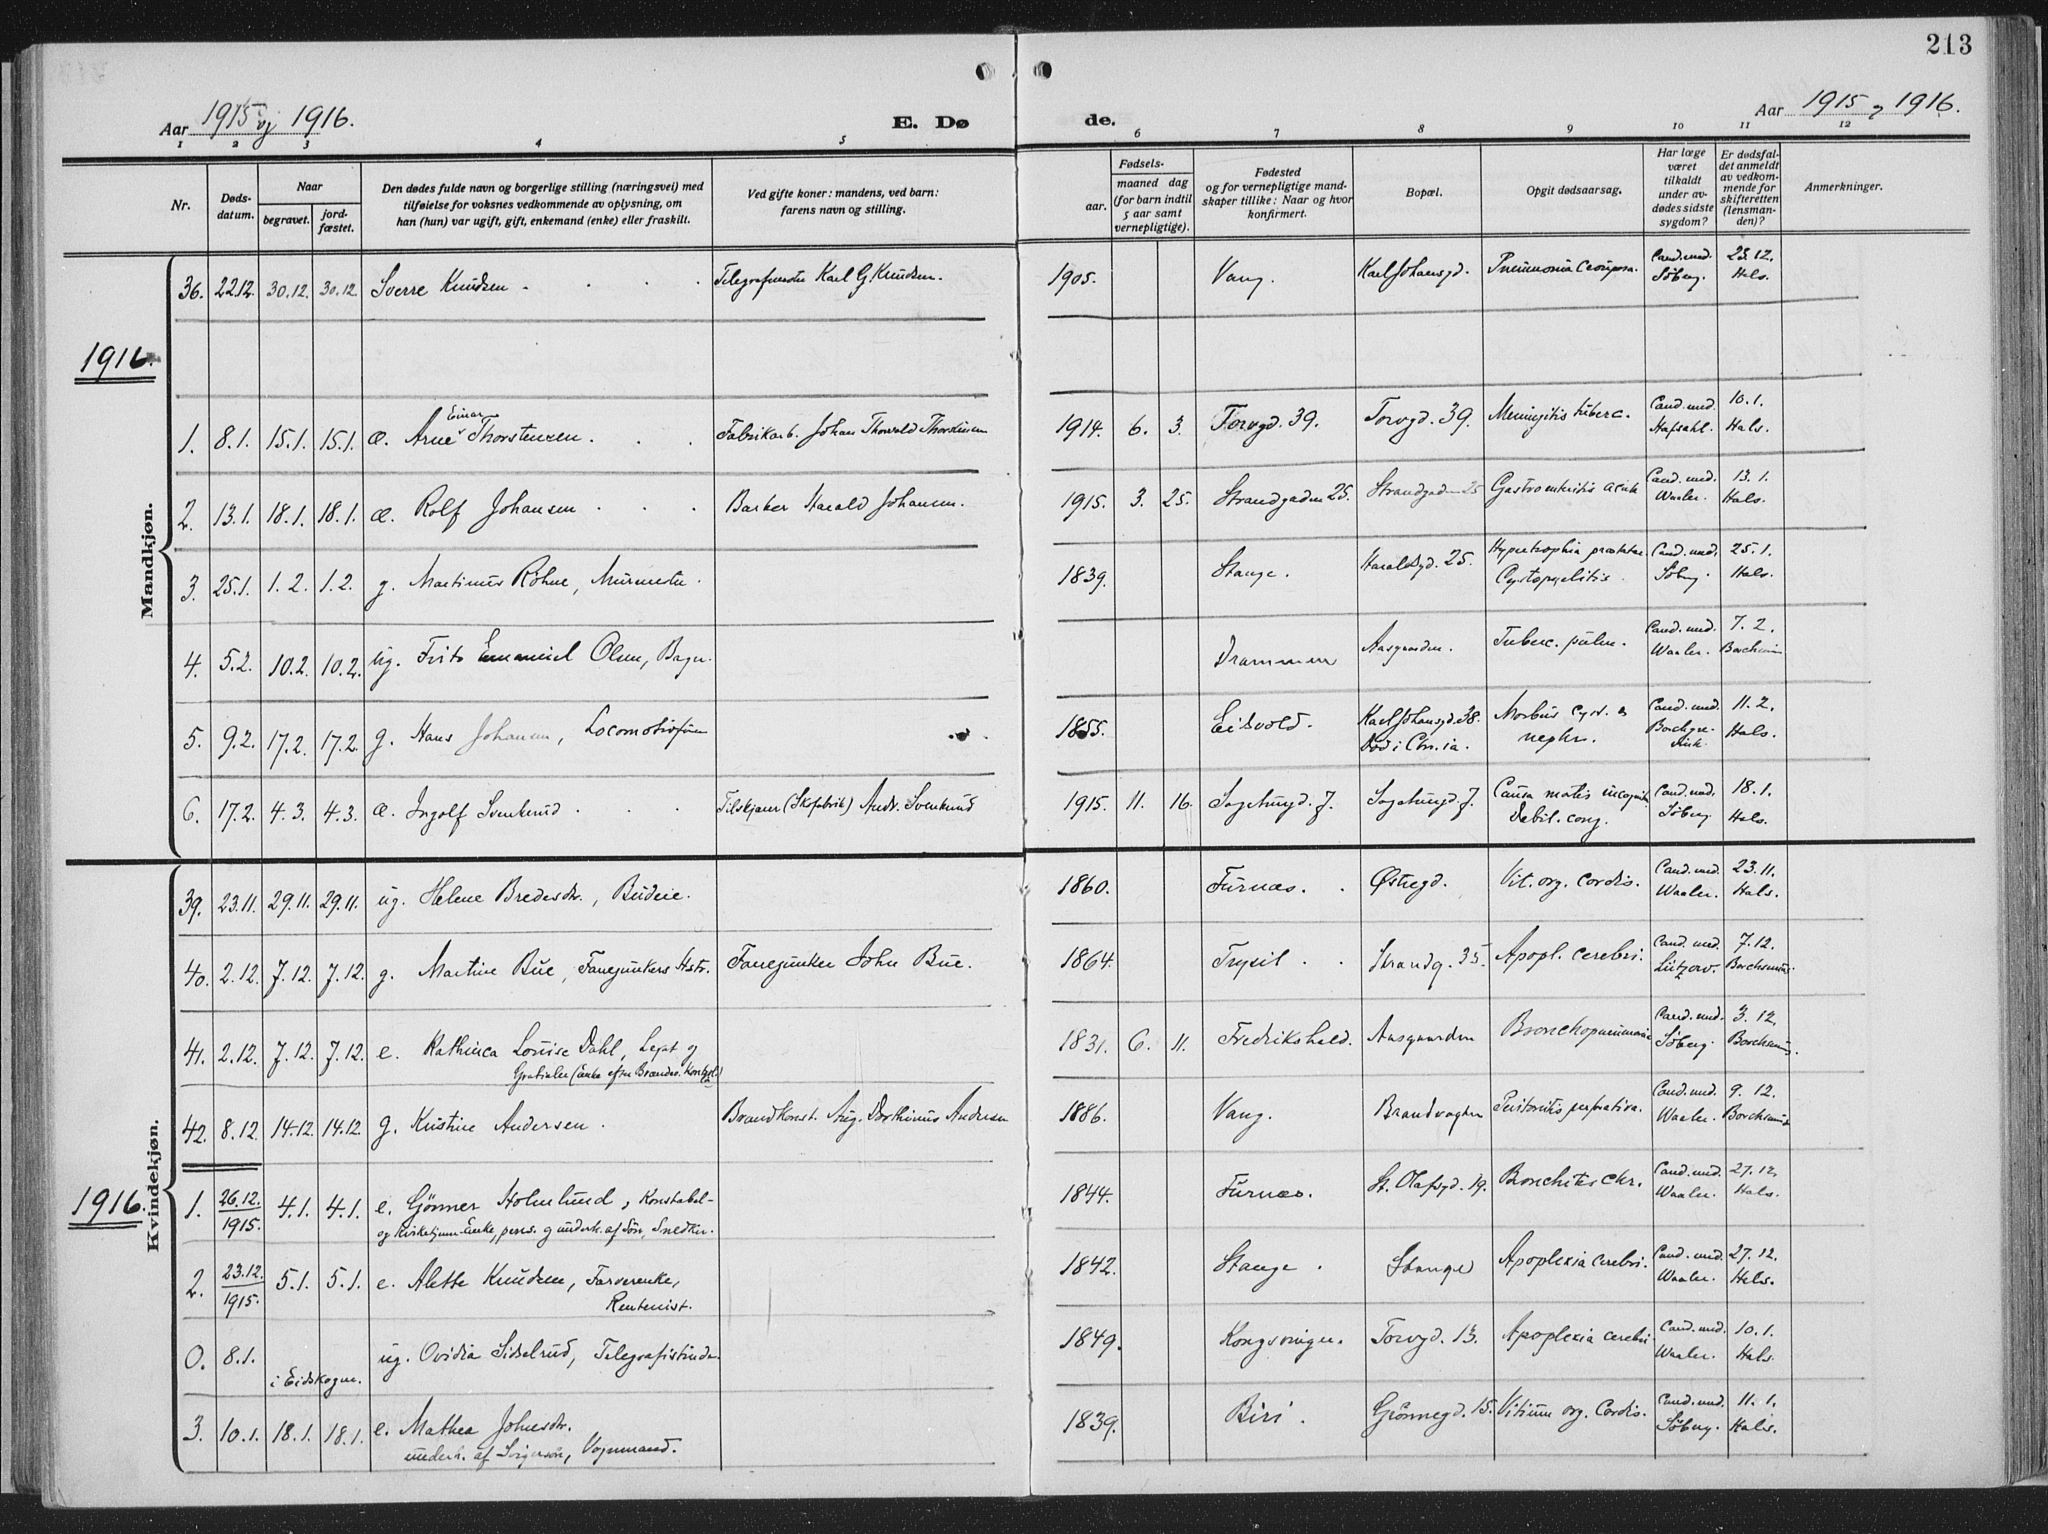 213
Aar 1915 og 1916.
E. Dø
de.
Aar 1915 og 1916.
1 2 3 4 5 6 7 8 9 10 11 12
Nr.
Døds-
datum.
Naar
begravet.
jord-
fæstet.
Den dødes fulde navn og borgerlige stilling (næringsvei) med
tilføielse for voksnes vedkommende av oplysning, om
han (hun) var ugift, gift, enkemand (enke) eller fraskilt.
Ved gifte koner: mandens, ved barn:
farens navn og stilling.
Fødsels-
aar.
maaned dag
(for barn indtil
5 aar samt
vernepligtige).
Fødested
og for vernepligtige mand-
skaper tillike: Naar og hvor
konfirmert.
Bopæl.
Opgit dødsaarsag.
Har læge
været
tilkaldt
under av-
dødes sidste
sygdom?
Er dødsfal-
det anmeldt
av vedkom-
mende for
skifteretten
(lensman-
den)?
Anmerkninger.
Mandkjøn.
36. 22.12. 30.12. 30.12. Sverre Knudsen Karl G. Knudsen. 1905. Vang. Karl Johansgd. Pneumonia Cand. med. Söberg. 23.12. Hals.
1916.
1. 8.1. 15.1. 15.1. æ. Arne Einar Thorstensen. Fabrikarb. Johan Thorvald Thorstensen 1914. 6. 3. Torvgd. 39. Torvgd. 39. Meningitis tuberc. Cand. med. Hafsahl. 10.1. Hals.
2. 13.1. 18.1. 18.1. æ. Rolf Johansen Barber Harald Johansen. 1915. 3. 25. Strandgaden 25. Strandgaden 25 Gastroenteritis acuta Cand. med. Waaler. 13.1. Hals.
3. 25.1. 1.2. 1.2. g. Martinus Röhne, Murmester. 1839. Stange. Haraldsgd. 25. Hypertrophia prostatae Cystopyelitis. Cand. med. Söberg. 25.1. Hals.
4. 5.2. 10.2. 10.2. ug. Frits Emanuel Olsen, Bager. Drammen Aasgaarden. Tuberc. pulm. Cand. med. Waaler. 7.2.
5. 9.2. 17.2. 17.2. g. Hans Johansen, 1855. Eidsvold. Karl Johansgd. 38. Död i Chr.ia. Morbus nephr. Cand. med. 11.2. Hals.
6. 17.2. 4.3. 4.3. æ. Ingolf Svenkerud Tilskjærer (Skofabrik) Andr. Svenkerud 1915. 11. 16. Causa mortis incognita Debil. cong. Cand. med. Söberg 18.1. Hals.
Kvindekjøn.
39. 23.11. 29.11. 29.11. ug. Helene Bredesdtr., Budeie. 1860. Furnæs. Østregd. Vit. org. cordis. Cand. med. Waaler. 23.11. Hals.
40. 2.12. 7.12. 7.12. g. Martine Bue, Fanejunkers Hstr. Fanejunker John Bue. 1864. Trysil Strandg. 35. Apopl. cerebri. Cand. med. Lützow. 7.12.
41. 2.12. 7.12. 7.12. e. Kathinca Louise Dahl, Legat og
Gratialer (Enke efter 1831. 6. 11. Fredrikshald. Aasgaarden Bronchopneumonia Cand. med. Söberg. 3.12.
42. 8.12. 14.12. 14.12. g. Kristine Andersen. Brandkonst. Aug. Andersen 1886. Vang. Brandvagten Peritonitis perforativa. Cand. med. Waaler. 9.12.
1916.
1. 26.12. 1915. 4.1. 4.1. e. Gönner Holmlund, Konstabel-
og Kirketjener-Enke, pens. og underh. af Sön, Snedker. 1844. Furnæs. St. Olafsgd. 19. Bronchitis chr. Cand. med. Waaler. 27.12. Hals.
2. 23.12. 1915. 5.1. 5.1. e. Alette Knudsen, Farverenke,
Rentenist. 1842. Stange. Stange Apoplexia cerebri. Cand. med. Waaler. 27.12. Hals.
0. 8.1. i Eidskogen. ug. Ovidia Sidselrud, Telegrafistinde. 1849. Kongsvinger. Torvgd. 13. Apoplexia cerebri. Cand. med. Waaler. 10.1. Hals.
3. 10.1. 18.1. 18.1. e. Mathea Johnsdtr.
underh. af Svigersön, Vognmand. 1839. Biri. Grönnegd. 15. Vitium org. Cordis. Cand. med. Söberg. 11.1. Hals.